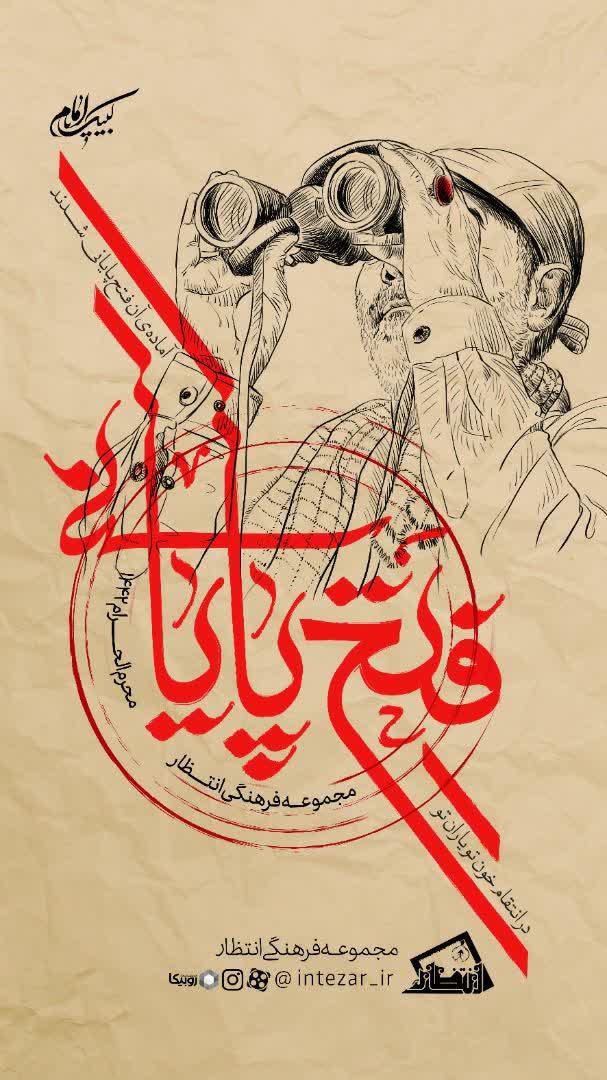 لبیک یا امام
آماده‌ی آن فتح پایانی شدند
فتح پایانی
محرم الحرام ۱۴۴۲
مجموعه فرهنگی انتظار
در انتقام خون تو یاران تو
مجموعه فرهنگی انتظار
انتظار
@intezar_ir
روبیکا